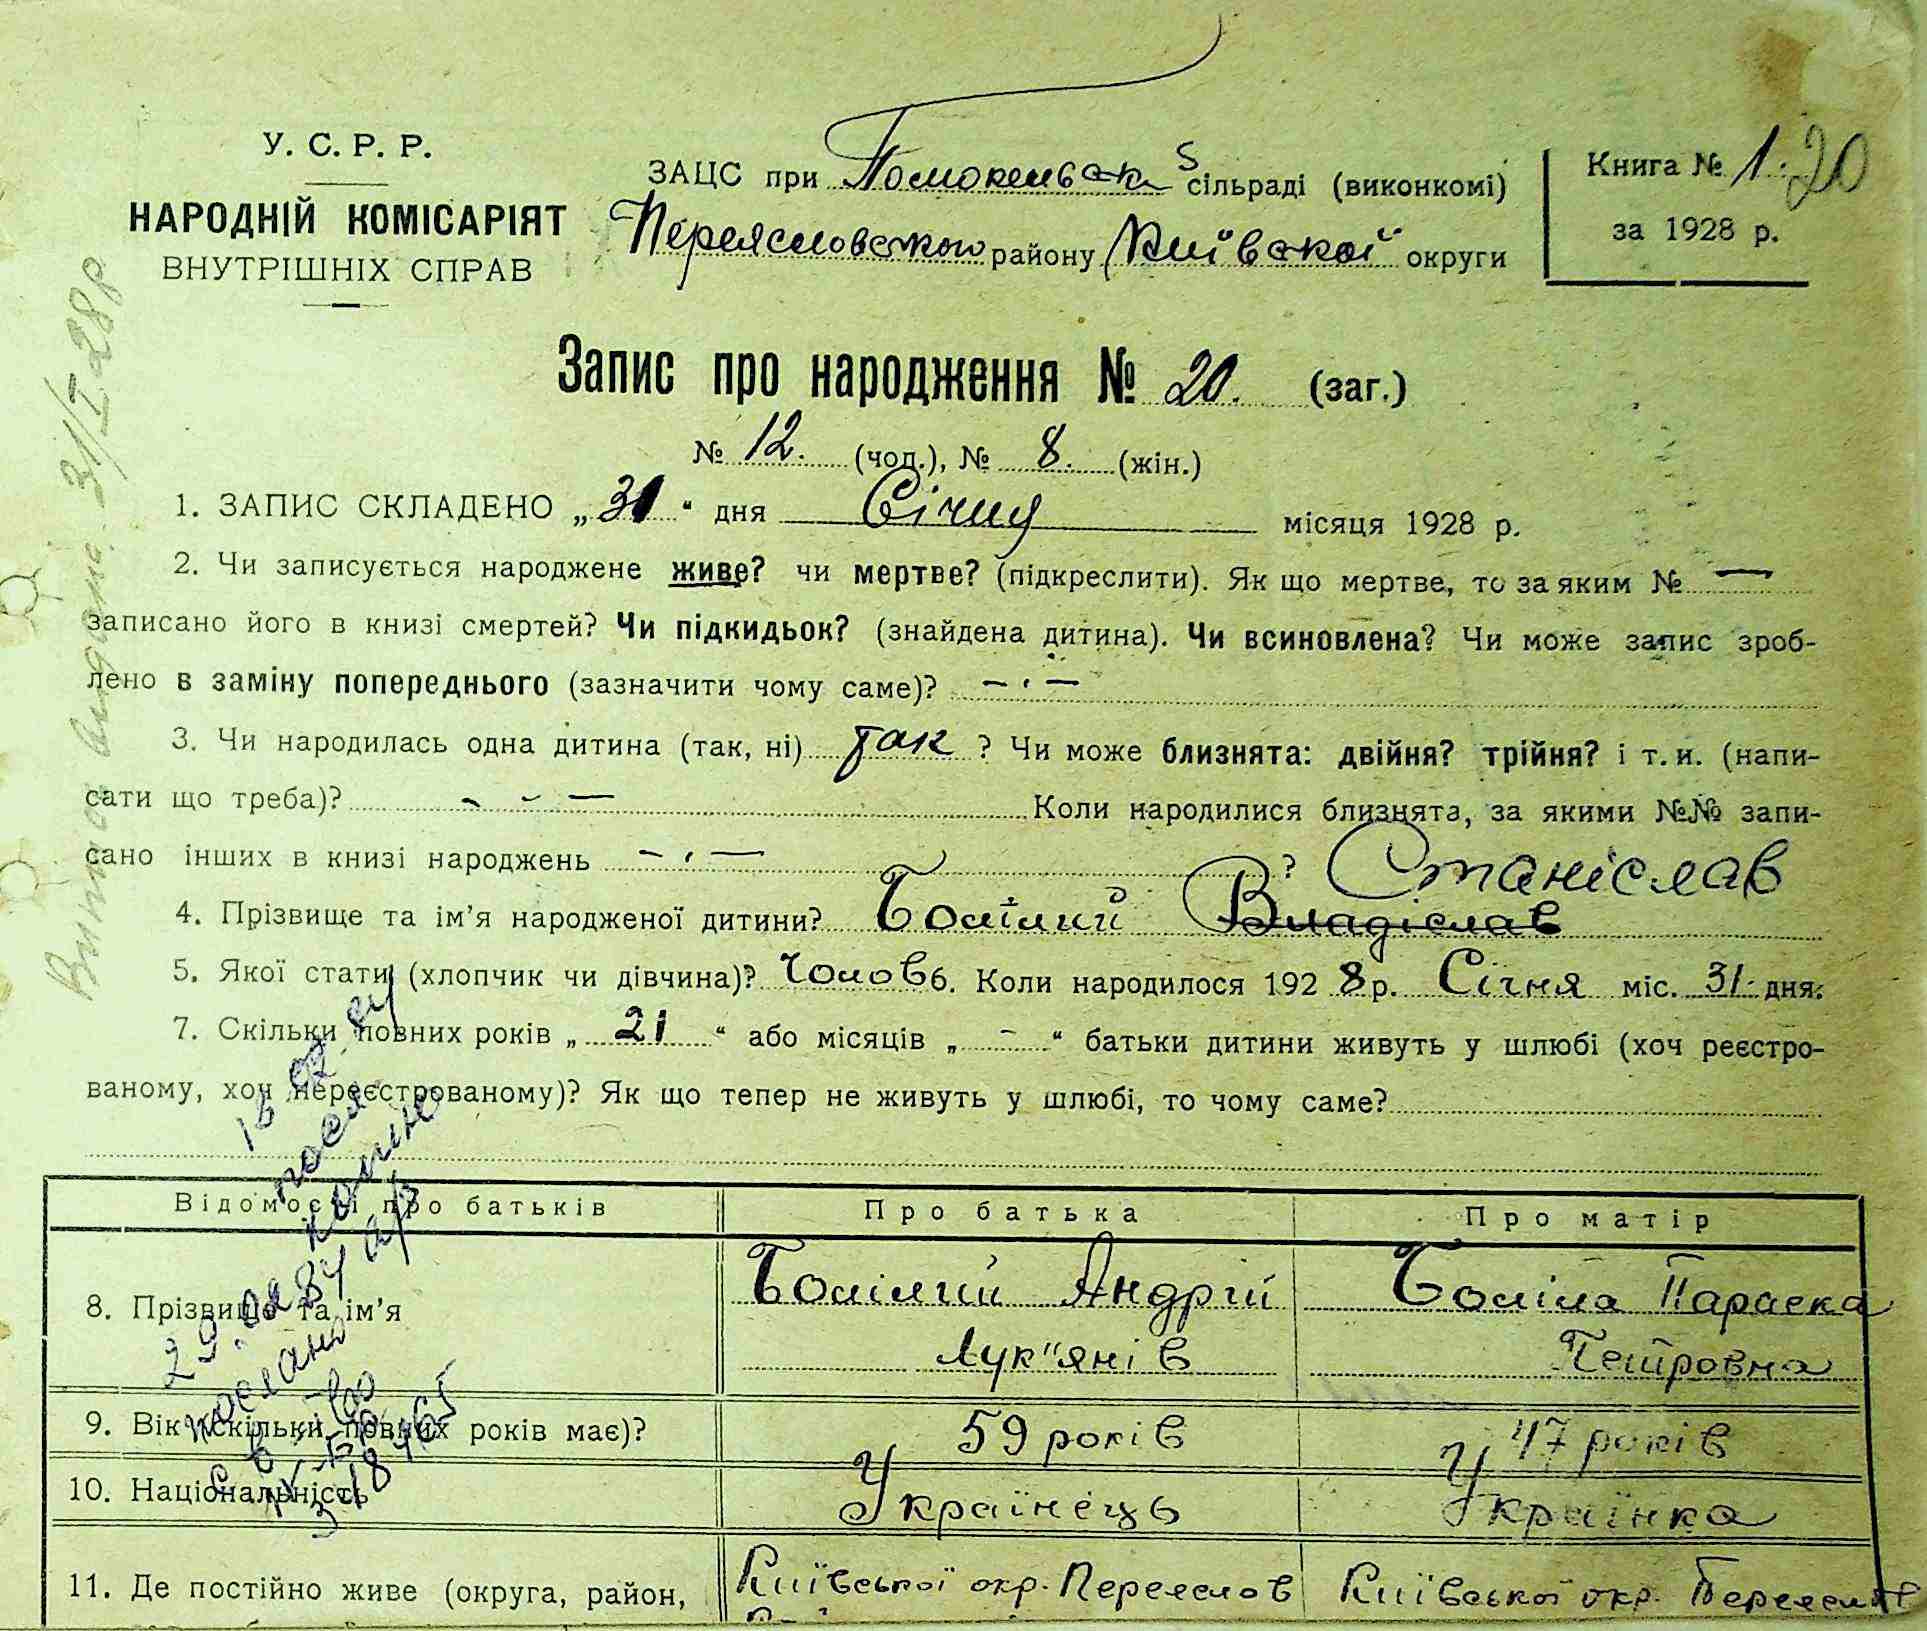 У. С. Р. Р.
НАРОДНІЙ КОМІСАРІЯТ
ВНУТРІШНІХ СПРАВ
ЗАЦС при Помокельськ сільраді (виконкомі)
Переясловського району Київской округи
Книга № 1. 20
за 1928 р.
Запис про народження № 20. (заг.)
№ 12. (чол.), № 8. (жін.)
1. ЗАПИС СКЛАДЕНО „31“ дня Січня місяця 1928 р.
2. Чи записується народжене живе? чи мертве? (підкреслити). Як що мертве, то за яким № —
записано його в книзі смертей? Чи підкидьок? (знайдена дитина). Чи всиновлена? Чи може запис зроб-
лено в заміну попереднього (зазначити чому саме)? — · —
3. Чи народилась одна дитина (так, ні) так ? Чи може близнята: двійня? трійня? і т. и. (напи-
сати що треба)? - - — Коли народилися близнята, за якими №№ запи-
сано інших в книзі народжень — · — ? Станіслав
4. Прізвище та ім’я народженої дитини? Болілий Владіслав
5. Якої стати (хлопчик чи дівчина)? Чолов 6. Коли народилося 1928 р. Січня міс. 31. дня.
7. Скільки повних років „21“ або місяців „-“ батьки дитини живуть у шлюбі (хоч реєстро-
ваному, хоч нереєстрованому)? Як що тепер не живуть у шлюбі, то чому саме?
Відомості про батьків Про батька Про матір
8. Прізвище та ім’я Болілий Андрій Боліла Параска
Лук"янів Петровна
9. Вік (скільки повних років має)? 59 років 47 років
10. Національність Українець Українка
11. Де постійно живе (округа, район, Київської окр. Переяслов Київської окр. Переяслов
Виписъ видана 31/I 28 р